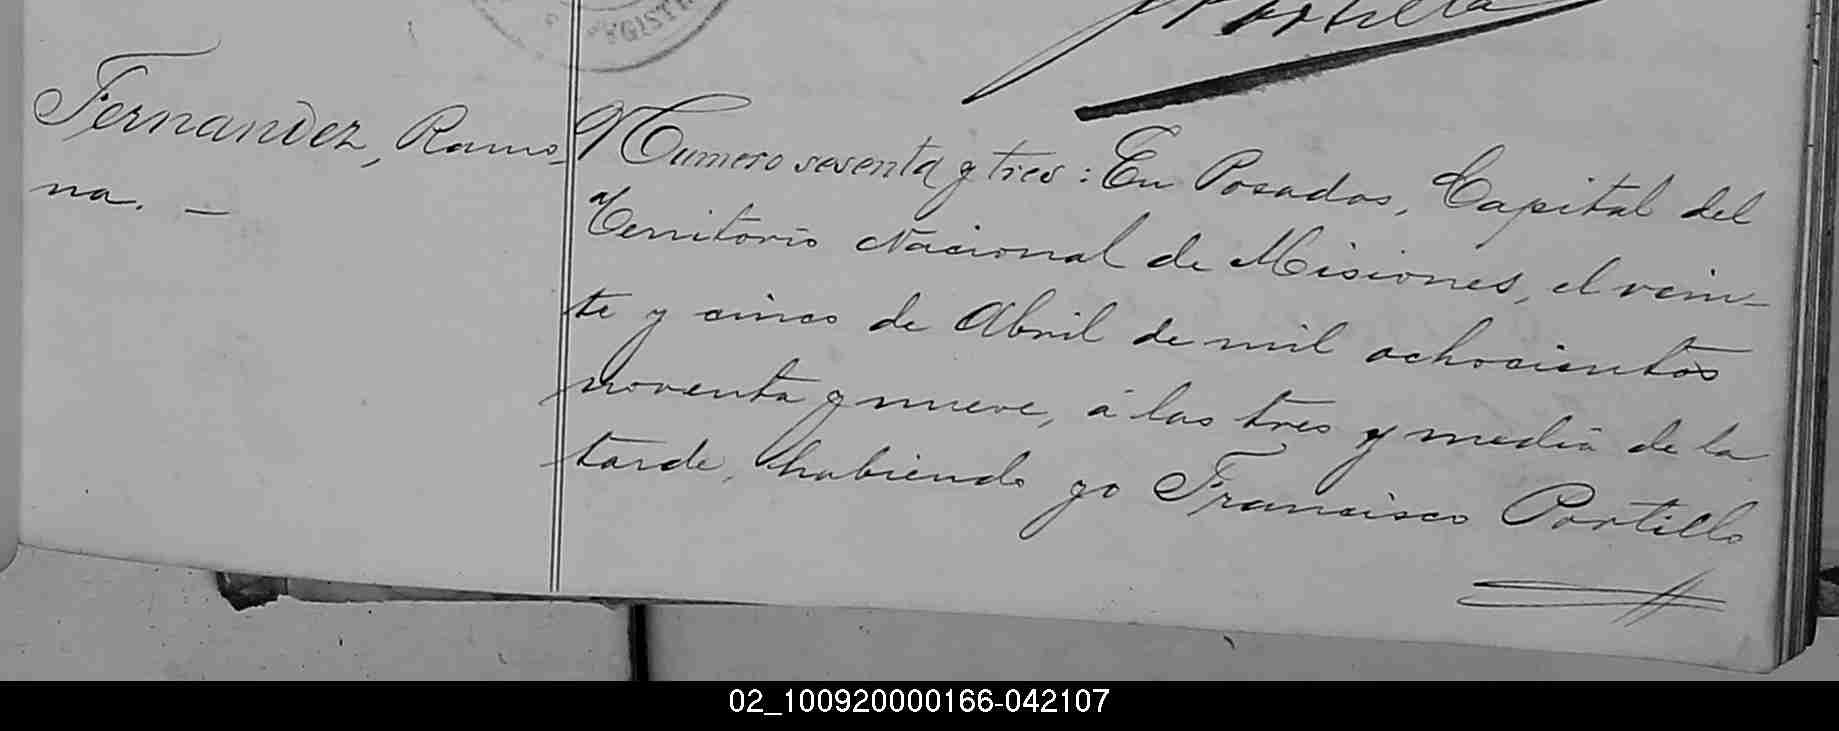 Portilla
Fernandez, Ramo-
na. —
Numero sesenta y tres: En Posadas, Capital del
Territorio Nacional de Misiones, el vein-
te y cinco de Abril de mil ochocientos
noventa y nueve, á las tres y media de la
tarde, habiendo yo Francisco Portillo
02_100920000166-042107